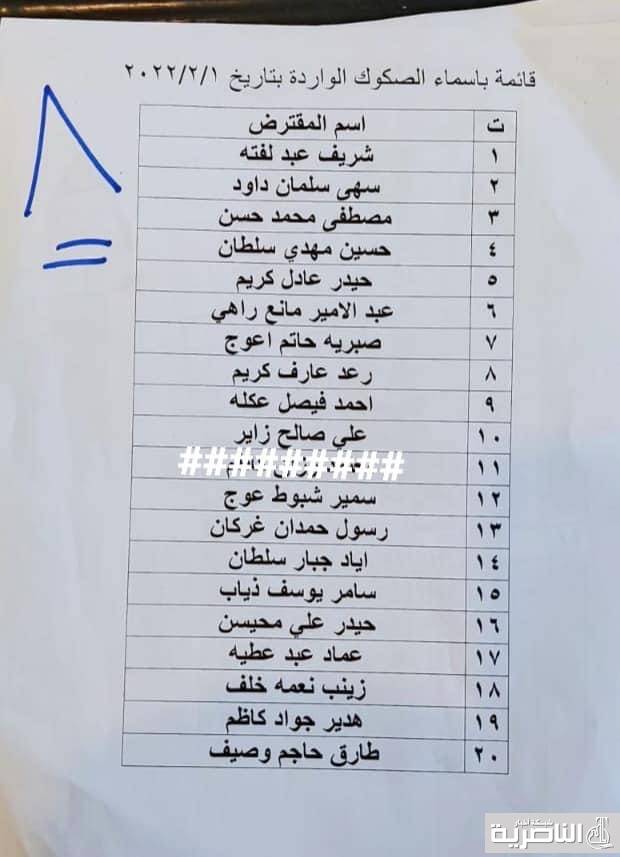 قائمة باسماء الصكوك الواردة بتاريخ ٢٠٢٢/٢/١
٨
ت اسم المقترض
١ شريف عبد لفته
٢ سهى سلمان داود
٣ مصطفى محمد حسن
٤ حسين مهدي سلطان
٥ حيدر عادل كريم
٦ عبد الامير مانع راهي
٧ صبريه حاتم اعوج
٨ رعد عارف كريم
٩ احمد فيصل عكله
١٠ علي صالح زاير
١١ #########
١٢ سمير شبوط عوج
١٣ رسول حمدان غركان
١٤ اياد جبار سلطان
١٥ سامر يوسف ذياب
١٦ حيدر علي محيسن
١٧ عماد عبد عطيه
١٨ زينب نعمه خلف
١٩ هدير جواد كاظم
٢٠ طارق حاجم وصيف
شبكة اخبار
الناصرية